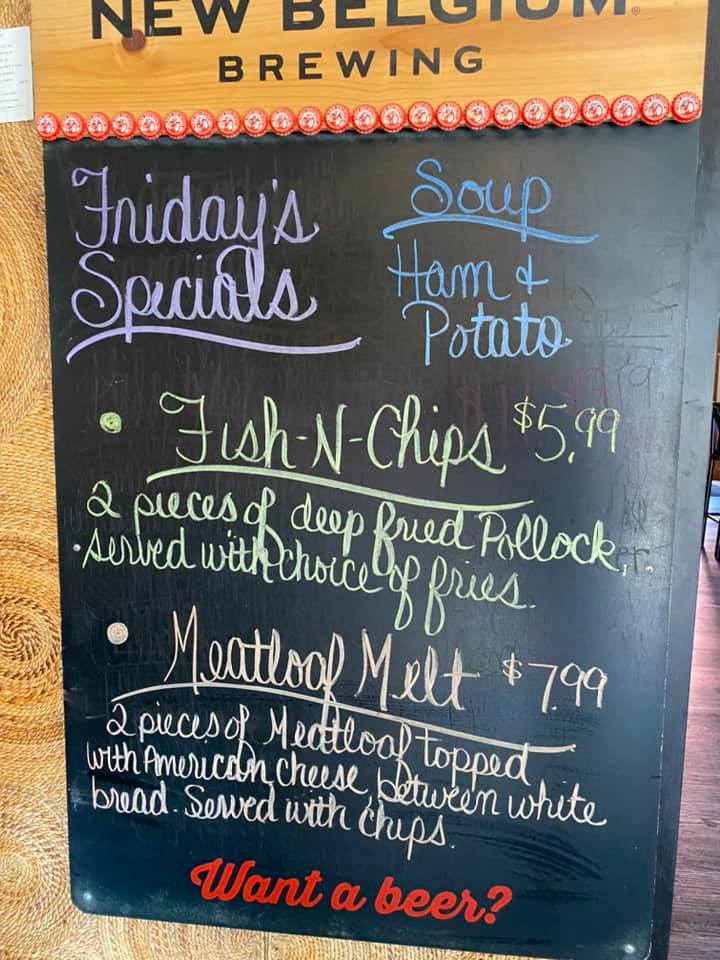 NEW BELGIUM
BREWING
Friday's
Specials
Soup
Ham &
Potato
• Fish-N-Chips $5.99
2 pieces of deep fried Pollock,
served with choice of fries.
• Meatloaf Melt $7.99
2 pieces of Meatloaf topped
with American cheese, between white
bread. Served with chips.
Want a beer?